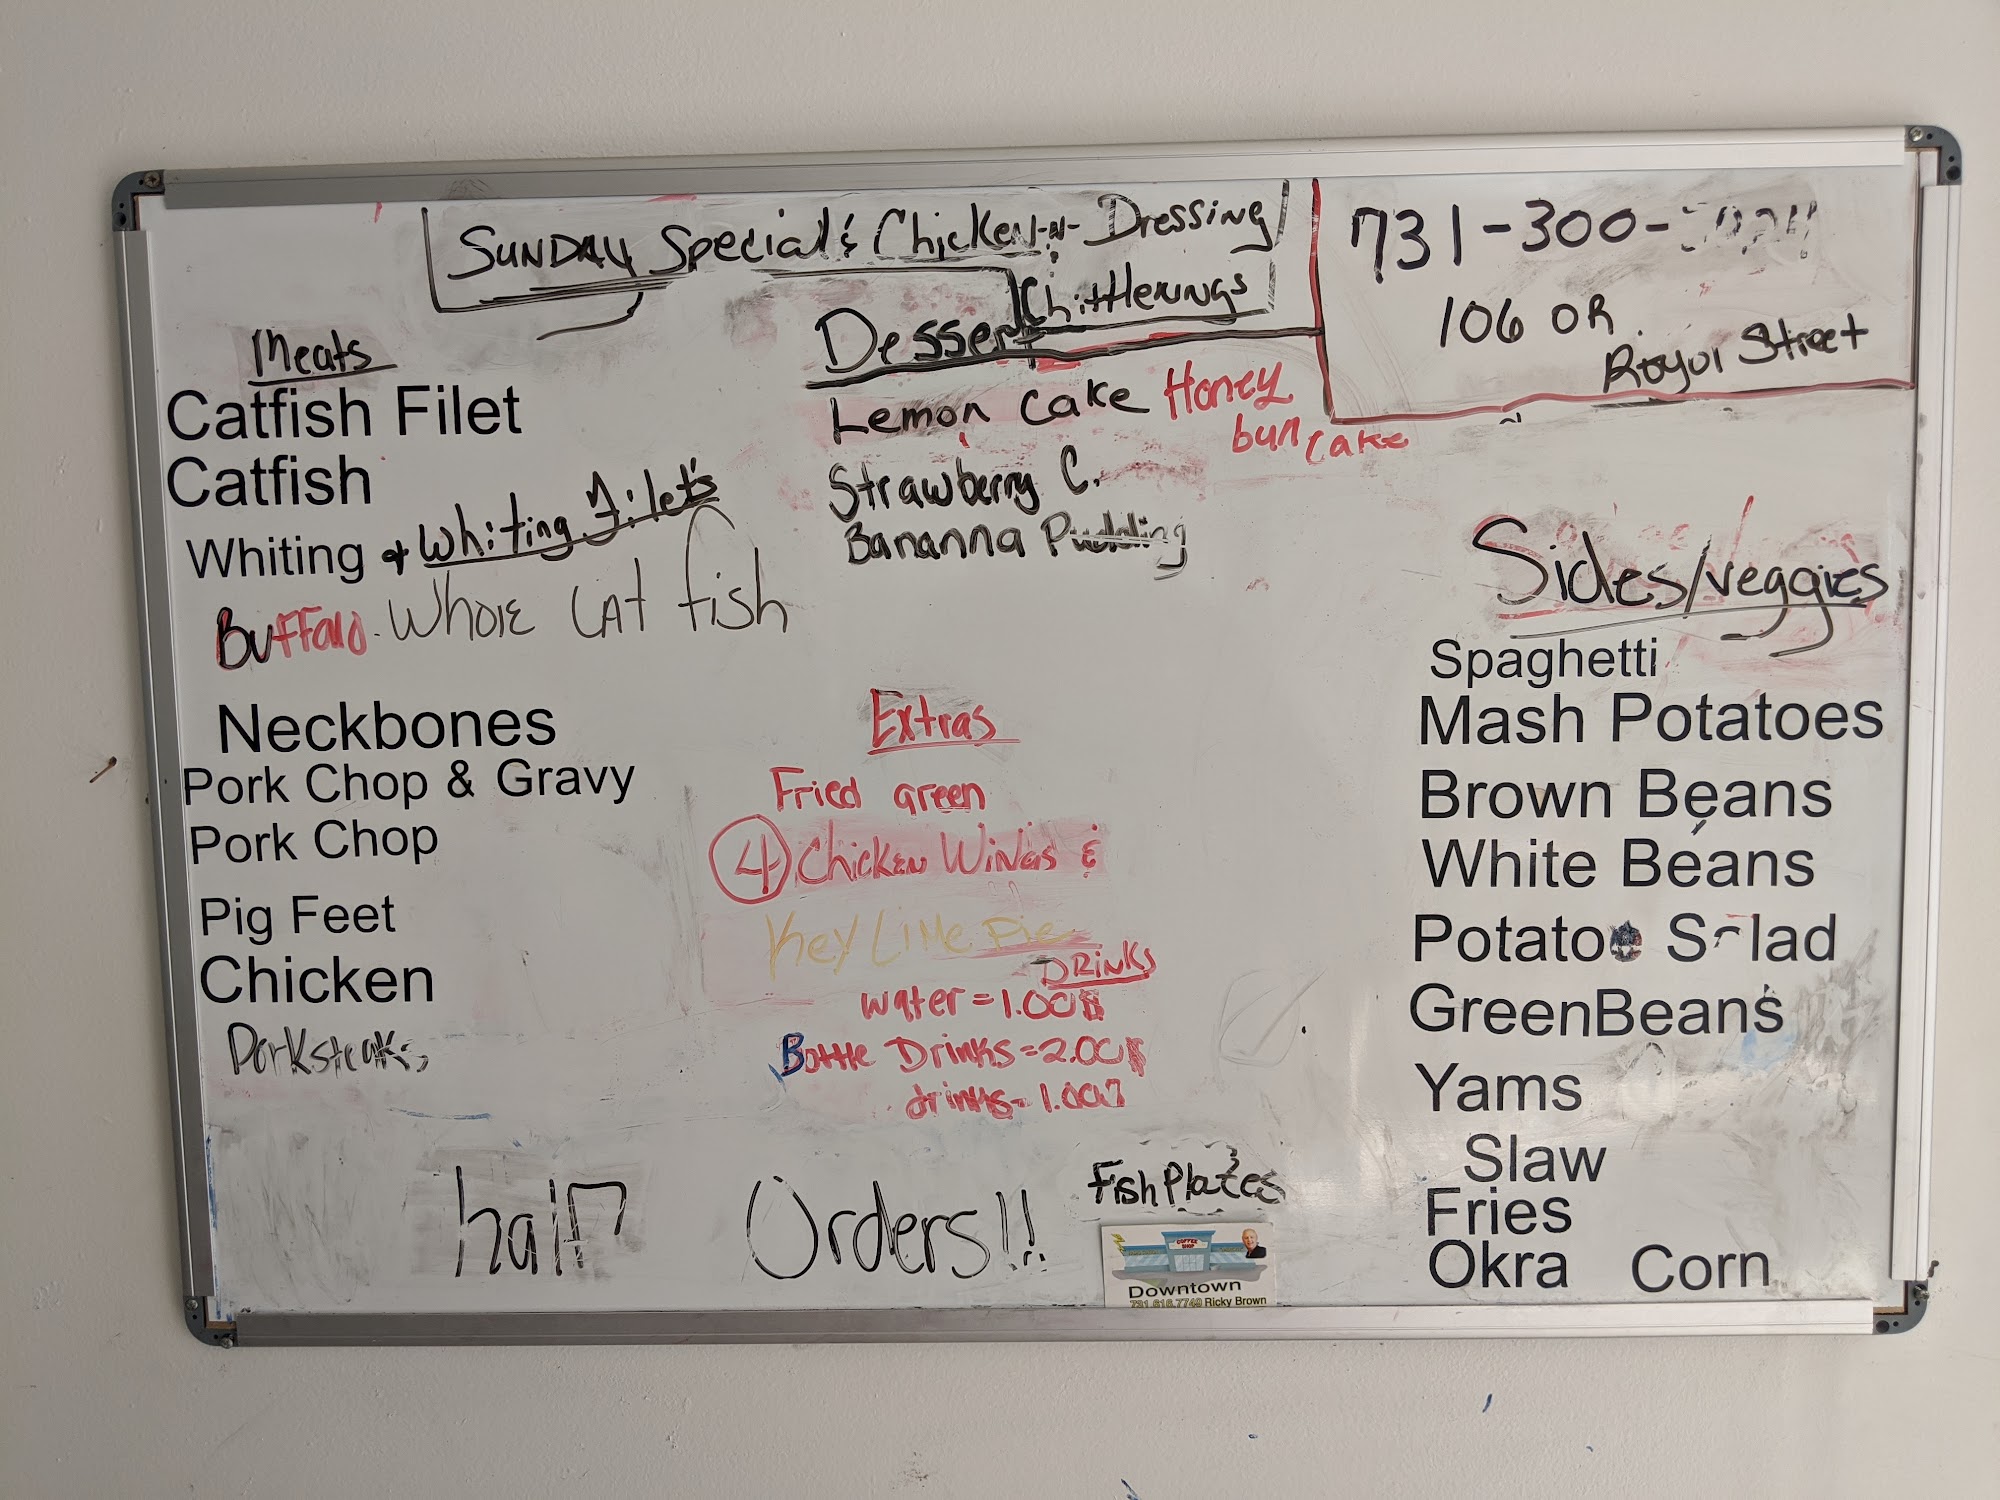 SUNDAY Special & Chicken-N- Dressing
Chittlerings
731-300-
106 OR
Royal Street
Meats
Catfish Filet
Catfish
Whiting & Whiting Filet's
Buffalo. Whole CAT fish
Neckbones
Pork Chop & Gravy
Pork Chop
Pig Feet
Chicken
Porksteaks
Dessert
Lemon Cake Honey
bun Cake
Strawberry C.
Bananna Pudding
Extras
Fried green
4 Chicken Wings &
Key Lime Pie
DRINKS
water = 1.00$
Bottle Drinks = 2.00$
drinks = 1.00
Sides/veggies
Spaghetti
Mash Potatoes
Brown Beans
White Beans
Potatoe Salad
GreenBeans
Yams
Slaw
Fries
Okra Corn
half Orders!!
Fish Plates
COFFEE SHOP
Downtown
731.616.7749 Ricky Brown